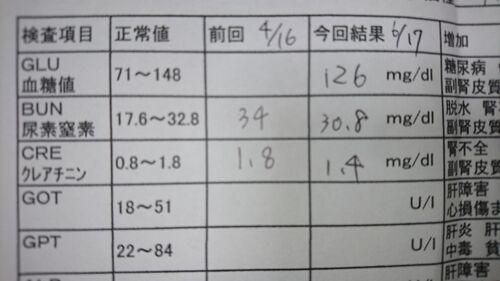 検査項目 正常値 前回 4/16 今回結果 6/17 増加
GLU
血糖値 71～148 126 mg/dl 糖尿病
副腎皮質
BUN
尿素窒素 17.6～32.8 34 30.8 mg/dl 脱水 腎
副腎皮質
CRE
クレアチニン 0.8～1.8 1.8 1.4 mg/dl 腎不全
副腎皮質
GOT
18～51 U/l 肝障害
心損傷ま
GPT
22～84 U/l 肝炎 肝
中毒 貧
肝障害